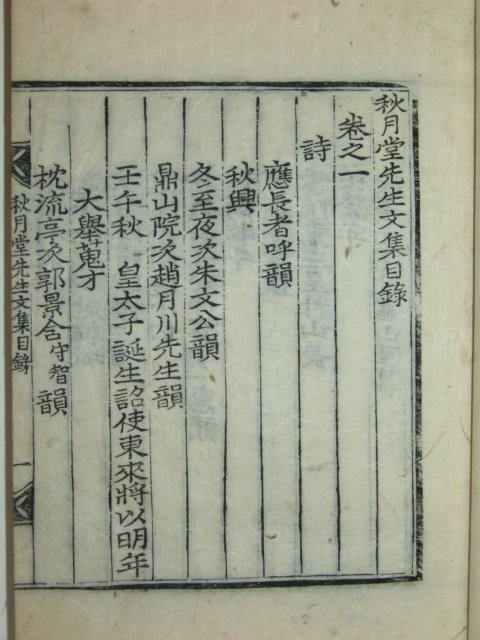 秋月堂先生文集目錄
卷之一
詩
應長者呼韻
秋興
冬至夜次朱文公韻
鼎山院次趙月川先生韻
壬午秋 皇太子誕生詔使東來將以明年
大擧蒐才
枕流亭次郭景含守智韻
秋月堂先生文集目錄 一